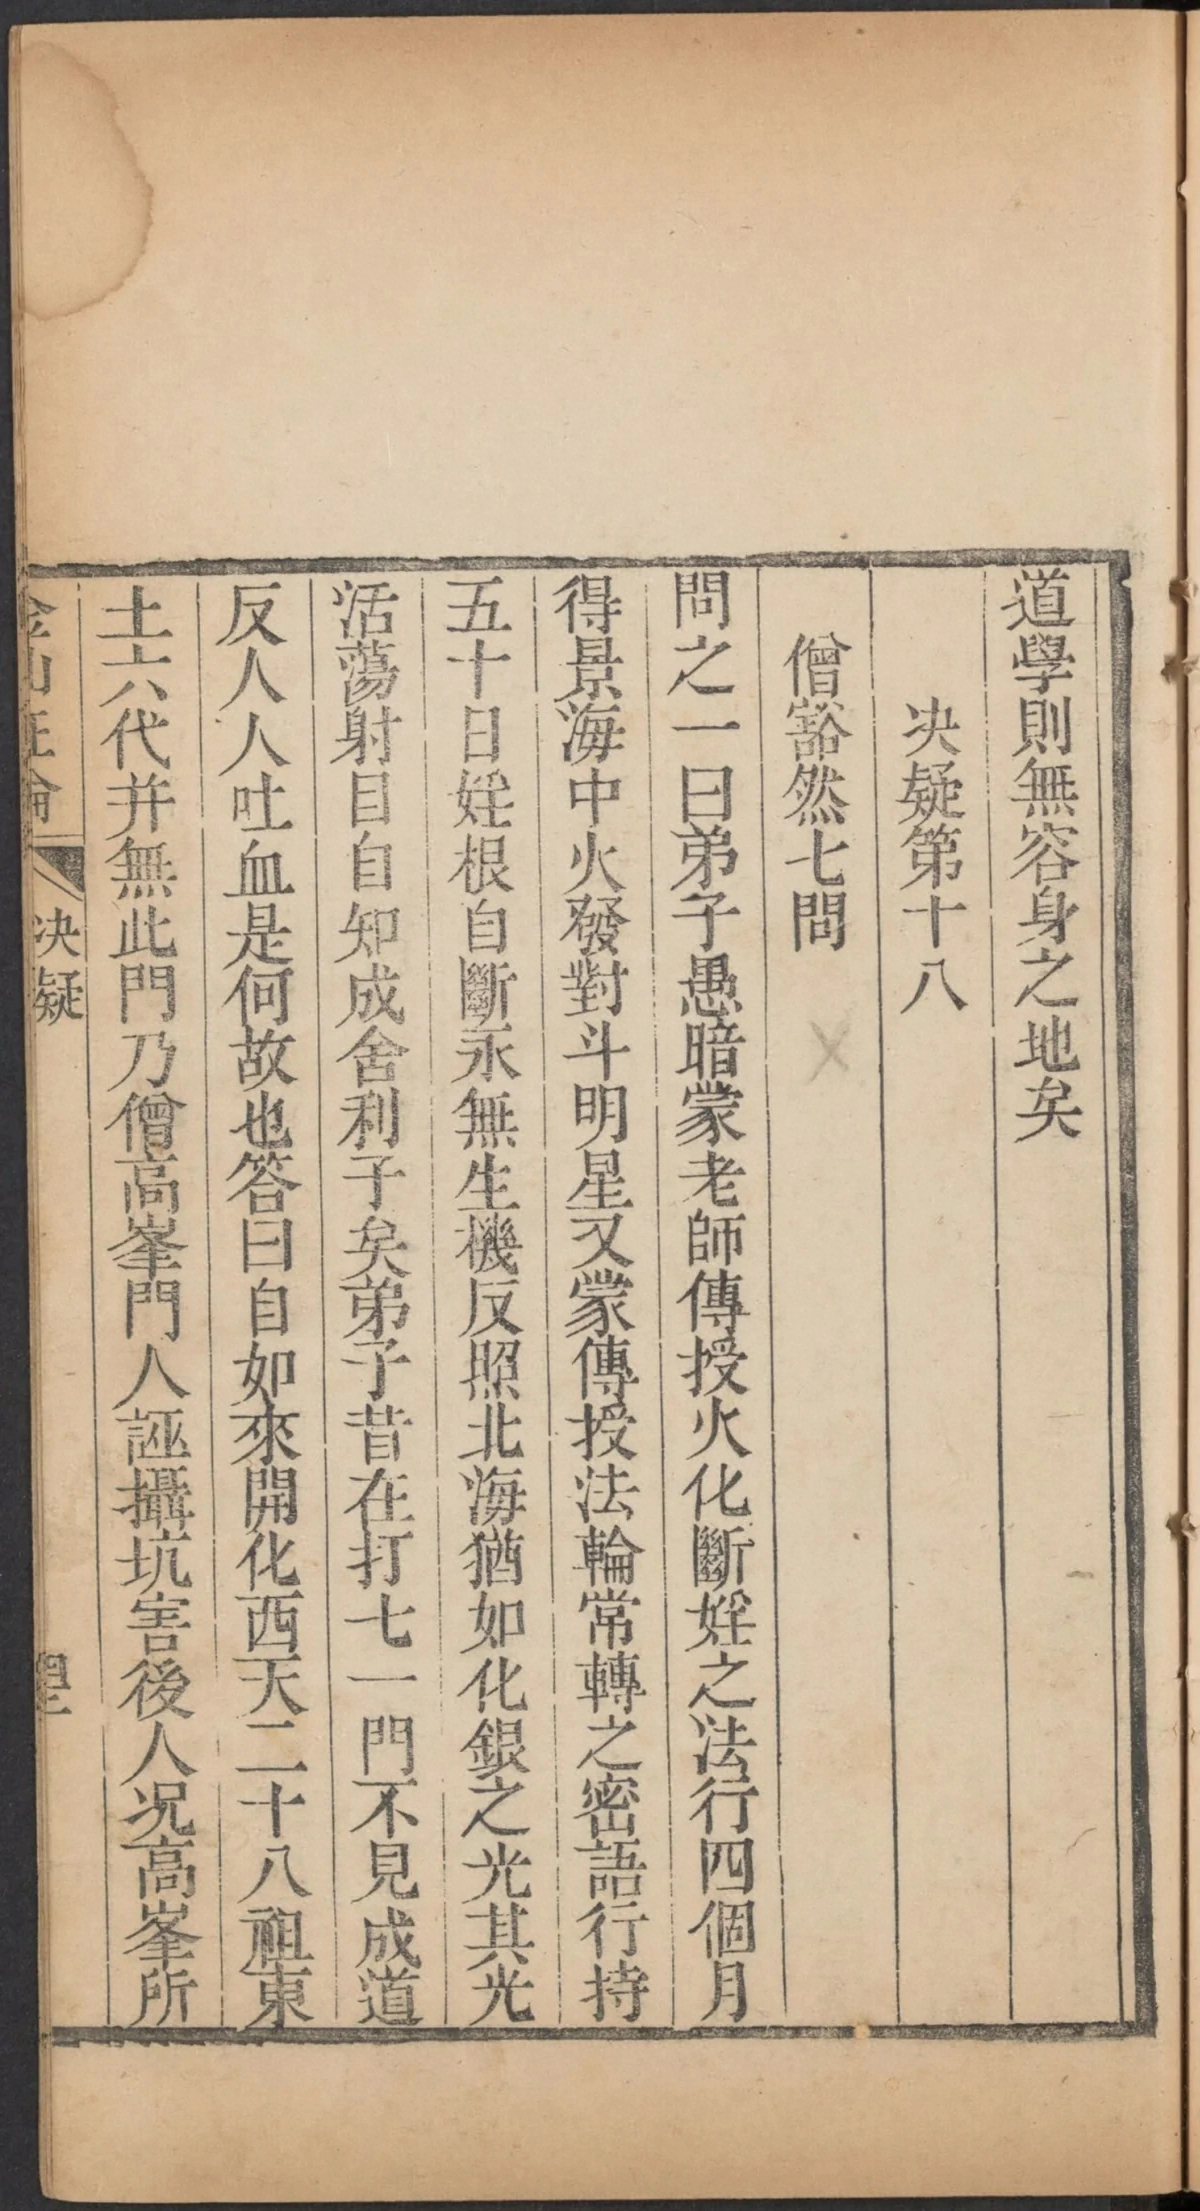 道學則無容身之地矣
決疑第十八
僧豁然七問
問之一曰弟子愚暗蒙老師傳授火化斷婬之法行四個月
得景海中火發對斗明星又蒙傳授法輪常轉之密語行持
五十日婬根自斷永無生機反照北海猶如化銀之光其光
活蕩射目自知成舍利子矣弟子昔在打七一門不見成道
反人人吐血是何故也答曰自如來開化西天二十八祖東
土六代并無此門乃僧高峯門人誣攝坑害後人况高峯所
決疑